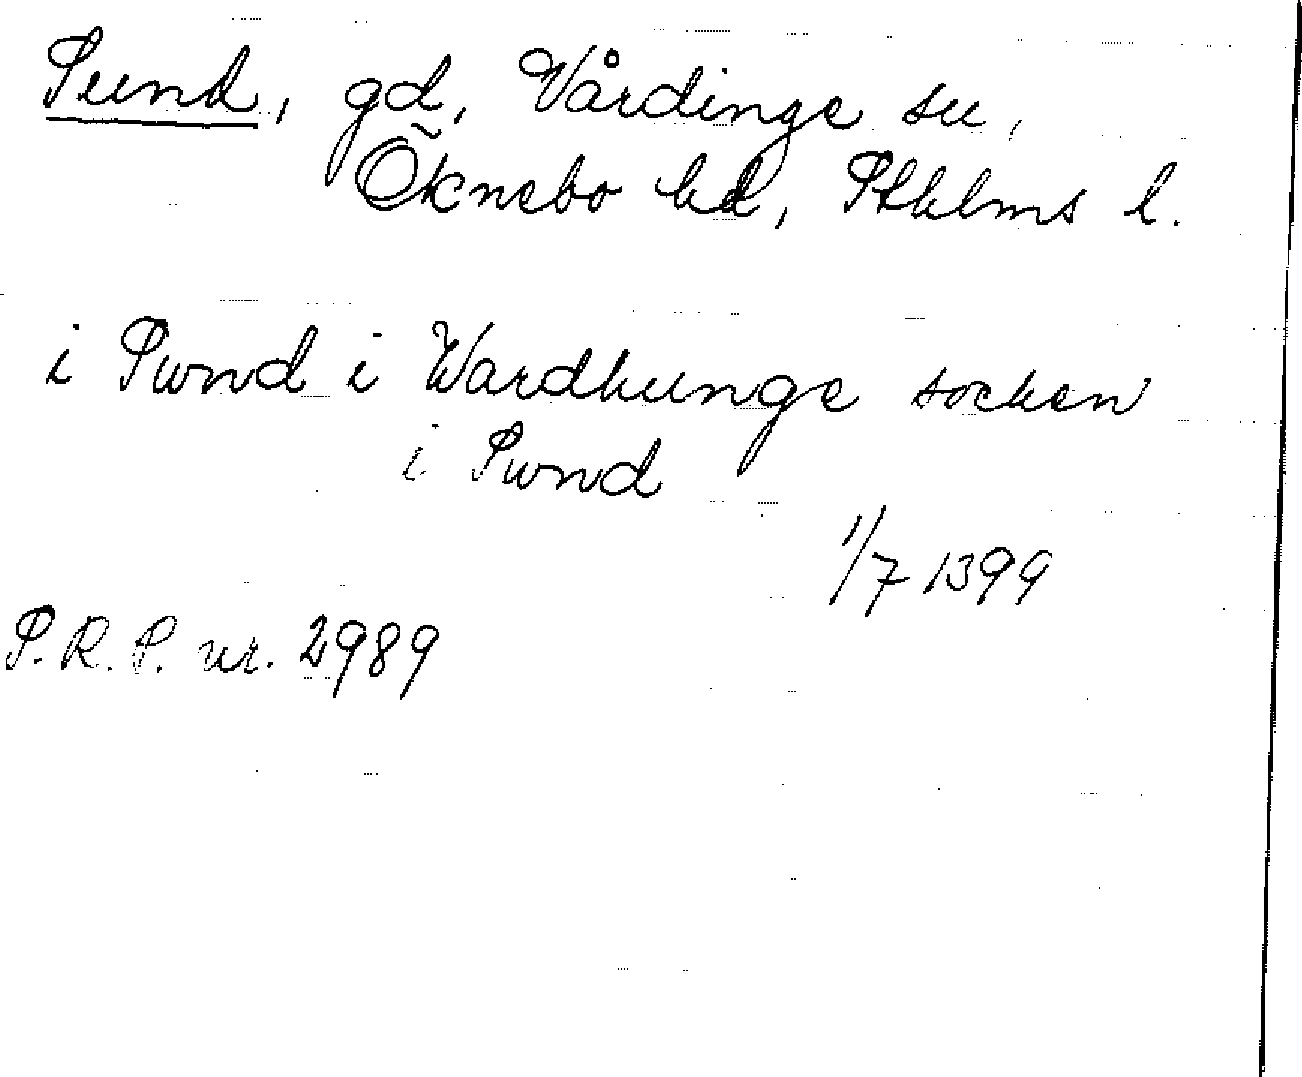 Sund, gd, Vårdinge su,
Öknebo hd, Sthlms l.
i Swnd i Wardhunge socken
i Swnd
1/7 1399
S.R.P. nr. 2989